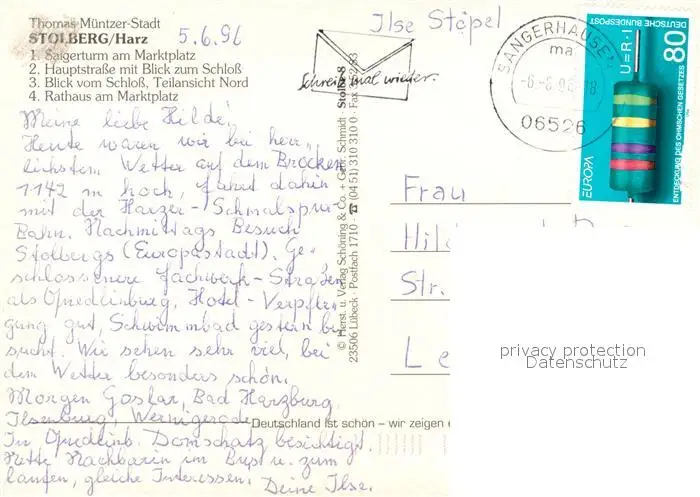 Thomas-Müntzer-Stadt
STOLBERG/Harz
5.6.96
1. Saigerturm am Marktplatz
2. Hauptstraße mit Blick zum Schloß
3. Blick vom Schloß, Teilansicht Nord
4. Rathaus am Marktplatz
Ilse Stöpel
Schreib mal wieder.
SANGERHAUSEN
ma
-6.-6.96-18
06526
DEUTSCHE BUNDESPOST
80
U=R·I
EUROPA
ENTDECKUNG DES OHMSCHEN GESETZES
Meine liebe Hilde!
Heute waren wir bei herr-
lichstem Wetter auf dem Brocken
1142 m hoch, fahrt dahin
mit der Harzer-Schmalspur-
Bahn. Nachmittags Besuch
Stolbergs (Europastadt). Ge-
schlossenere Fachwerk-Straßen
als Quedlinburg. Hotel-Verpfle-
gung gut, Schwimmbad gestern be-
sucht. Wir sehen sehr viel, bei
dem Wetter besonders schön.
Morgen Goslar, Bad Harzburg,
Ilsenburg, Wernigerode
In Quedlinb. Domschatz besichtigt.
Nette Nachbarin im Bus u. zum
laufen, gleiche Interessen. Deine Ilse.
© Herst. u. Verlag Schöning & Co. + Gebr. Schmidt
23505 Lübeck · Postfach 1710 · ☎ (04 51) 310 310 0
Deutschland ist schön – wir zeigen
Frau
Hil
Str.
Le
privacy protection
Datenschutz